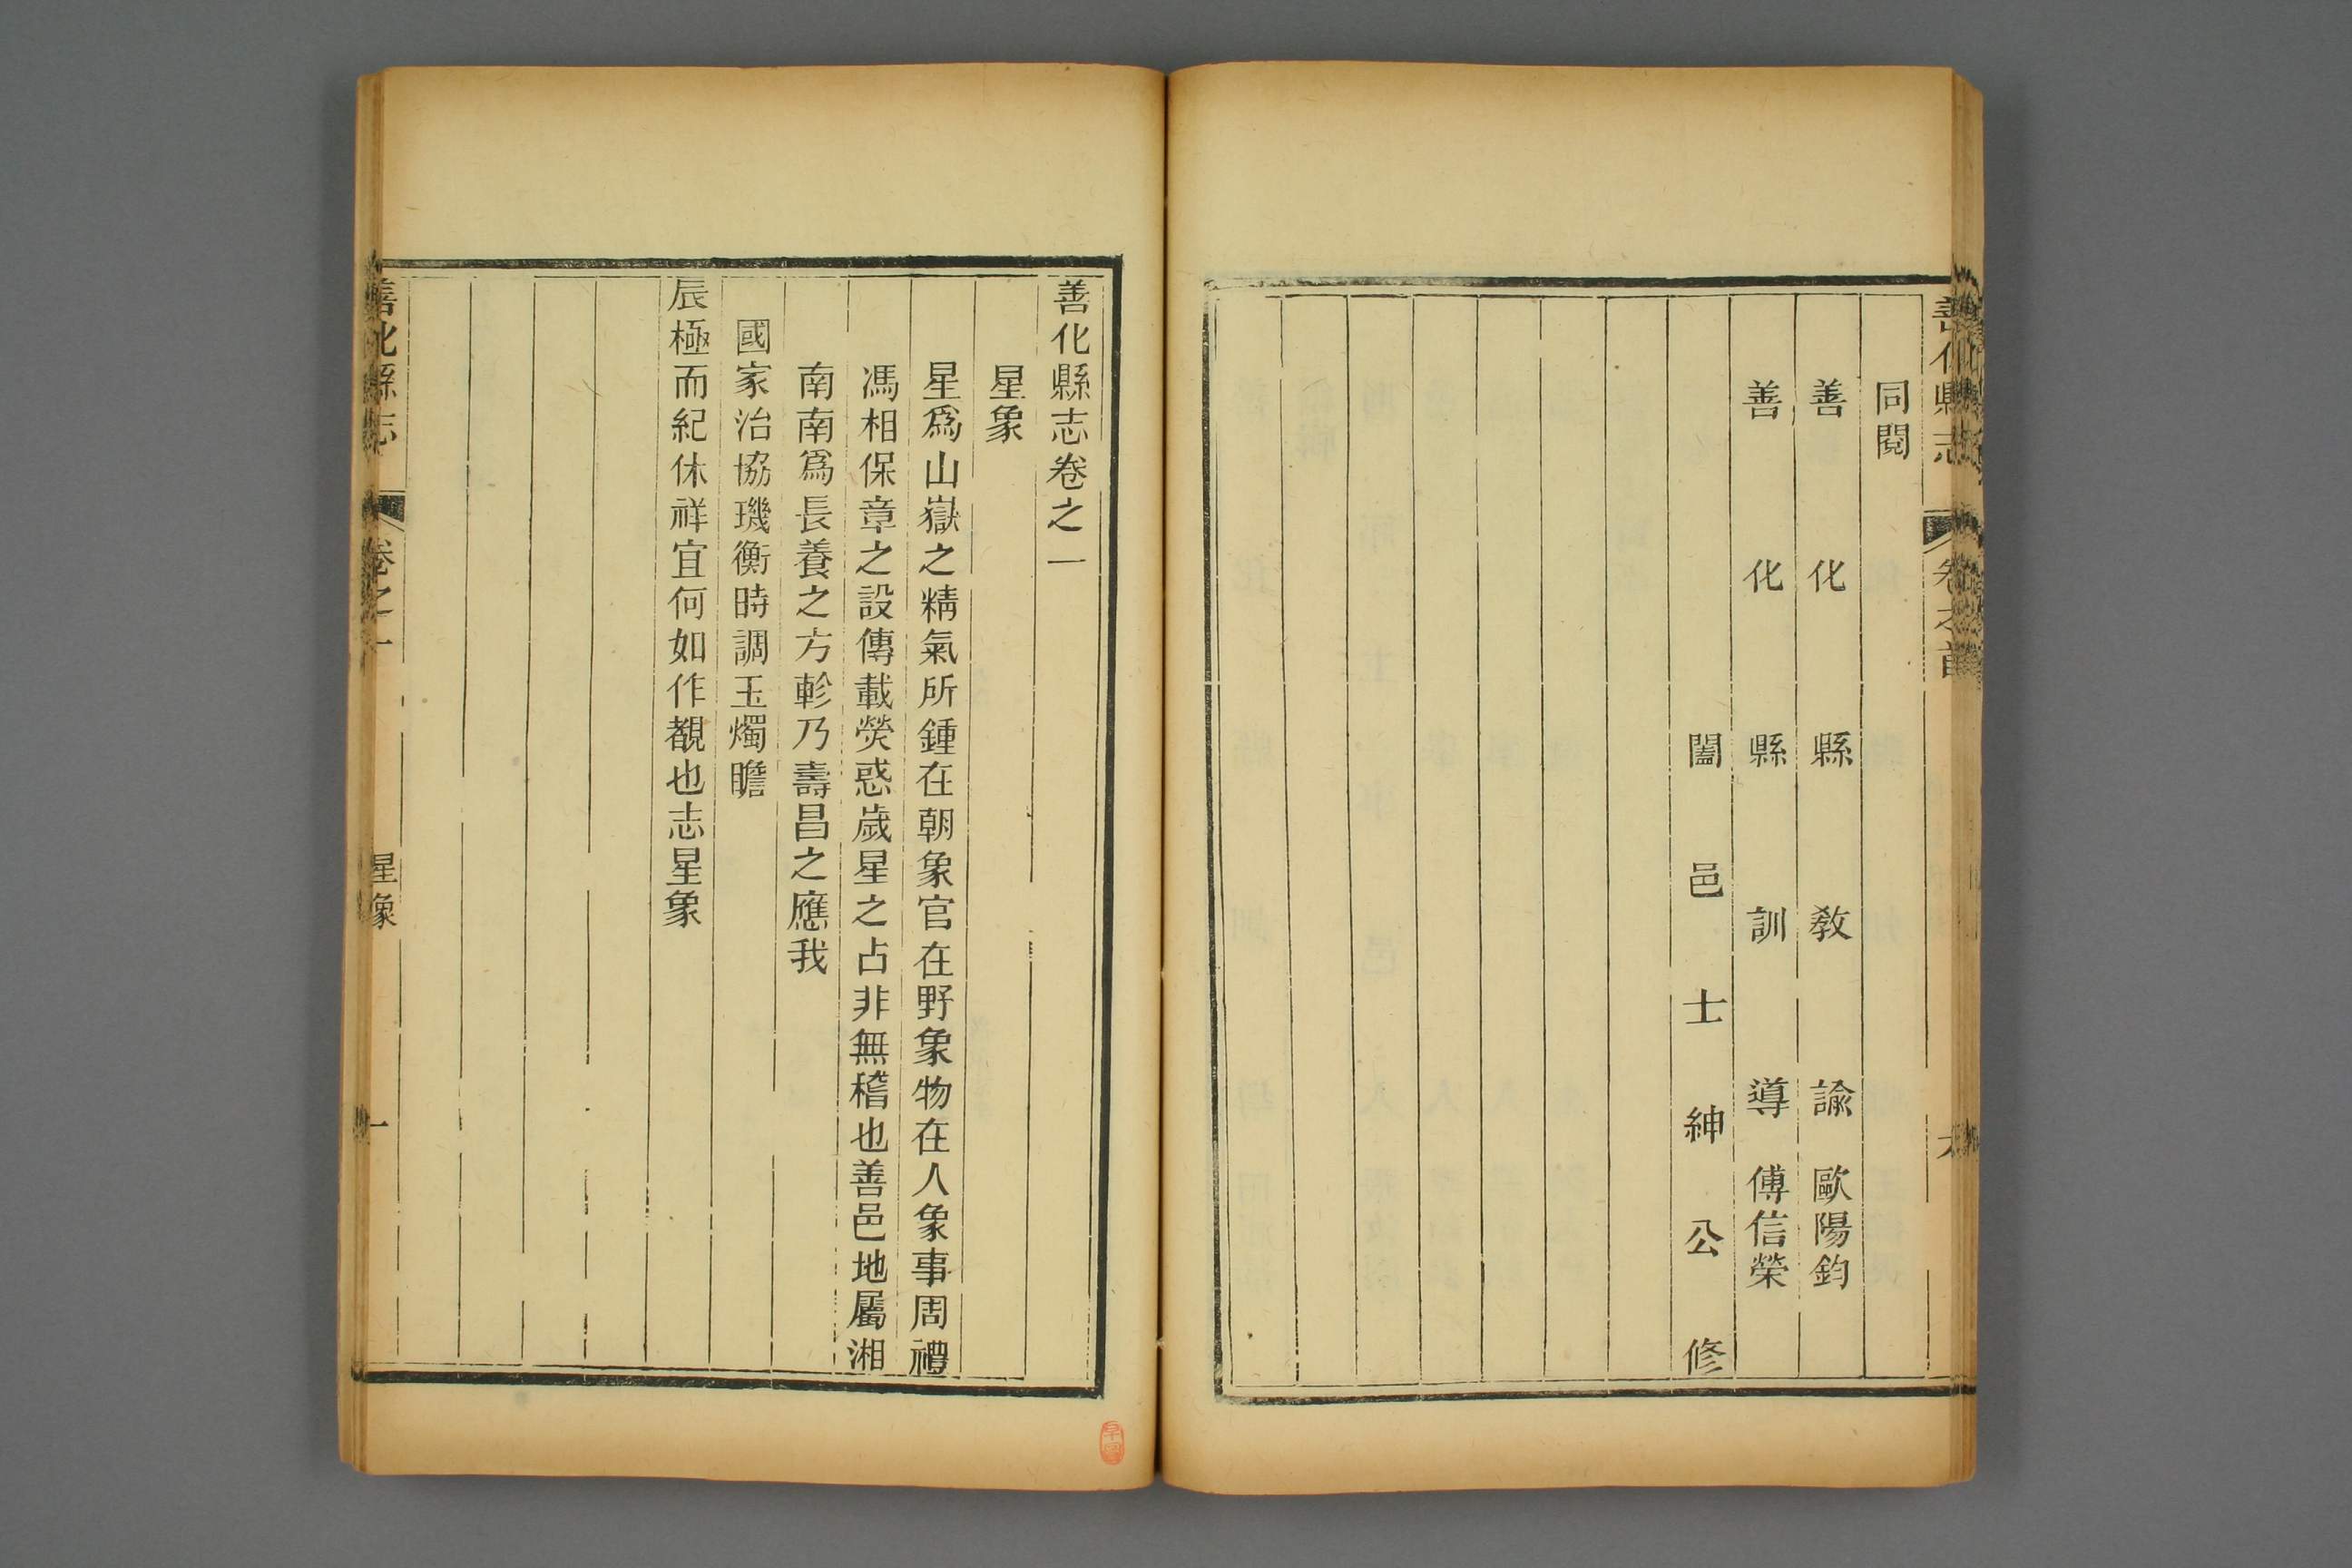 善化縣志 卷之首
同閱
善化縣教諭歐陽鈞
善化縣訓導傅信榮
闔邑士紳公修
善化縣志卷之一
星象
星爲山嶽之精氣所鍾在朝象官在野象物在人象事周禮
馮相保章之設傳載熒惑歲星之占非無稽也善邑地屬湘
南南爲長養之方軫乃壽昌之應我
國家治協璣衡時調玉燭瞻
辰極而紀休祥宜何如作覩也志星象
善化縣志 卷之一 星象 一